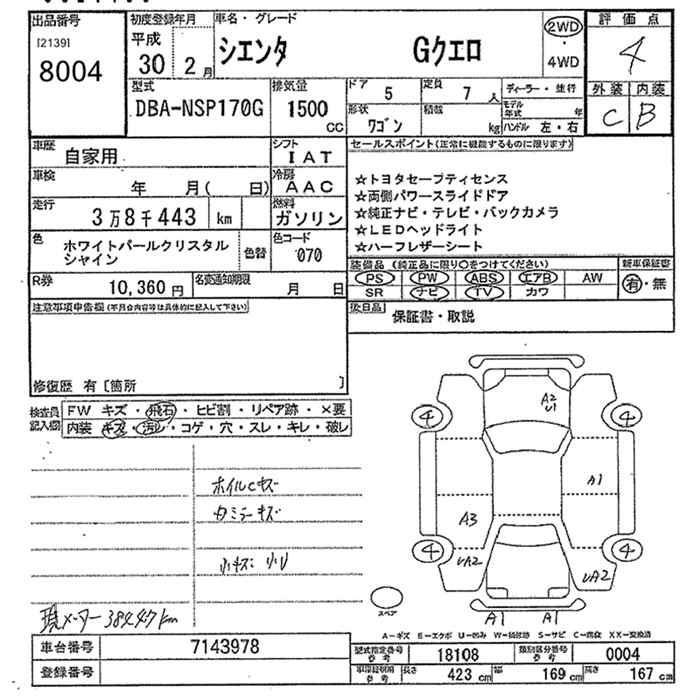 出品番号 初度登録年月 車名・グレード 2WD 評価点
[2139] 平成
8004 30年 2月 シエンタ Gクエロ 4WD 4
型式 排気量 ドア 5 定員 7人 ディーラー・並行 外装 内装
DBA-NSP170G 1500cc 形状 ワゴン 積載 kg モデル年式 年 C B
ハンドル 左・右
車歴 自家用 シフト IAT セールスポイント(正常に機能するものに限ります)
車検 年 月( 日) 冷房 AAC ☆トヨタセーフティセンス
☆両側パワースライドドア
走行 3万8千443 km 燃料 ガソリン ☆純正ナビ・テレビ・バックカメラ
☆LEDヘッドライト
色 ホワイトパールクリスタルシャイン 色替 色コード 070 ☆ハーフレザーシート
装備品(純正品に限り○をつけてください) 新車保証書
R券 10,360円 名変通知期限 月 日 PS PW ABS エアB AW 有・無
SR ナビ TV カワ
注意事項申告欄(不具合内容等は具体的に記入して下さい) 後日品 保証書・取説
修復歴 有[箇所 ]
検査員記入欄 FW キズ・飛石・ヒビ割・リペア跡・×要
内装 キズ・汚レ・コゲ・穴・スレ・キレ・破レ
A2
U1
4 4
ホイルCキズ A1
カミラーキズ A3
4 4
小キズ 小U UA2 UA2
現メーター38447km スペア A1 A1
A-キズ E-エクボ U-凹み W-補修跡 S-サビ C-腐食 XX-交換済
車台番号 7143978 型式指定番号 参考 18108 類別区分番号 参考 0004
登録番号 車両総明細 参考 長さ 423cm 幅 169cm 高さ 167cm